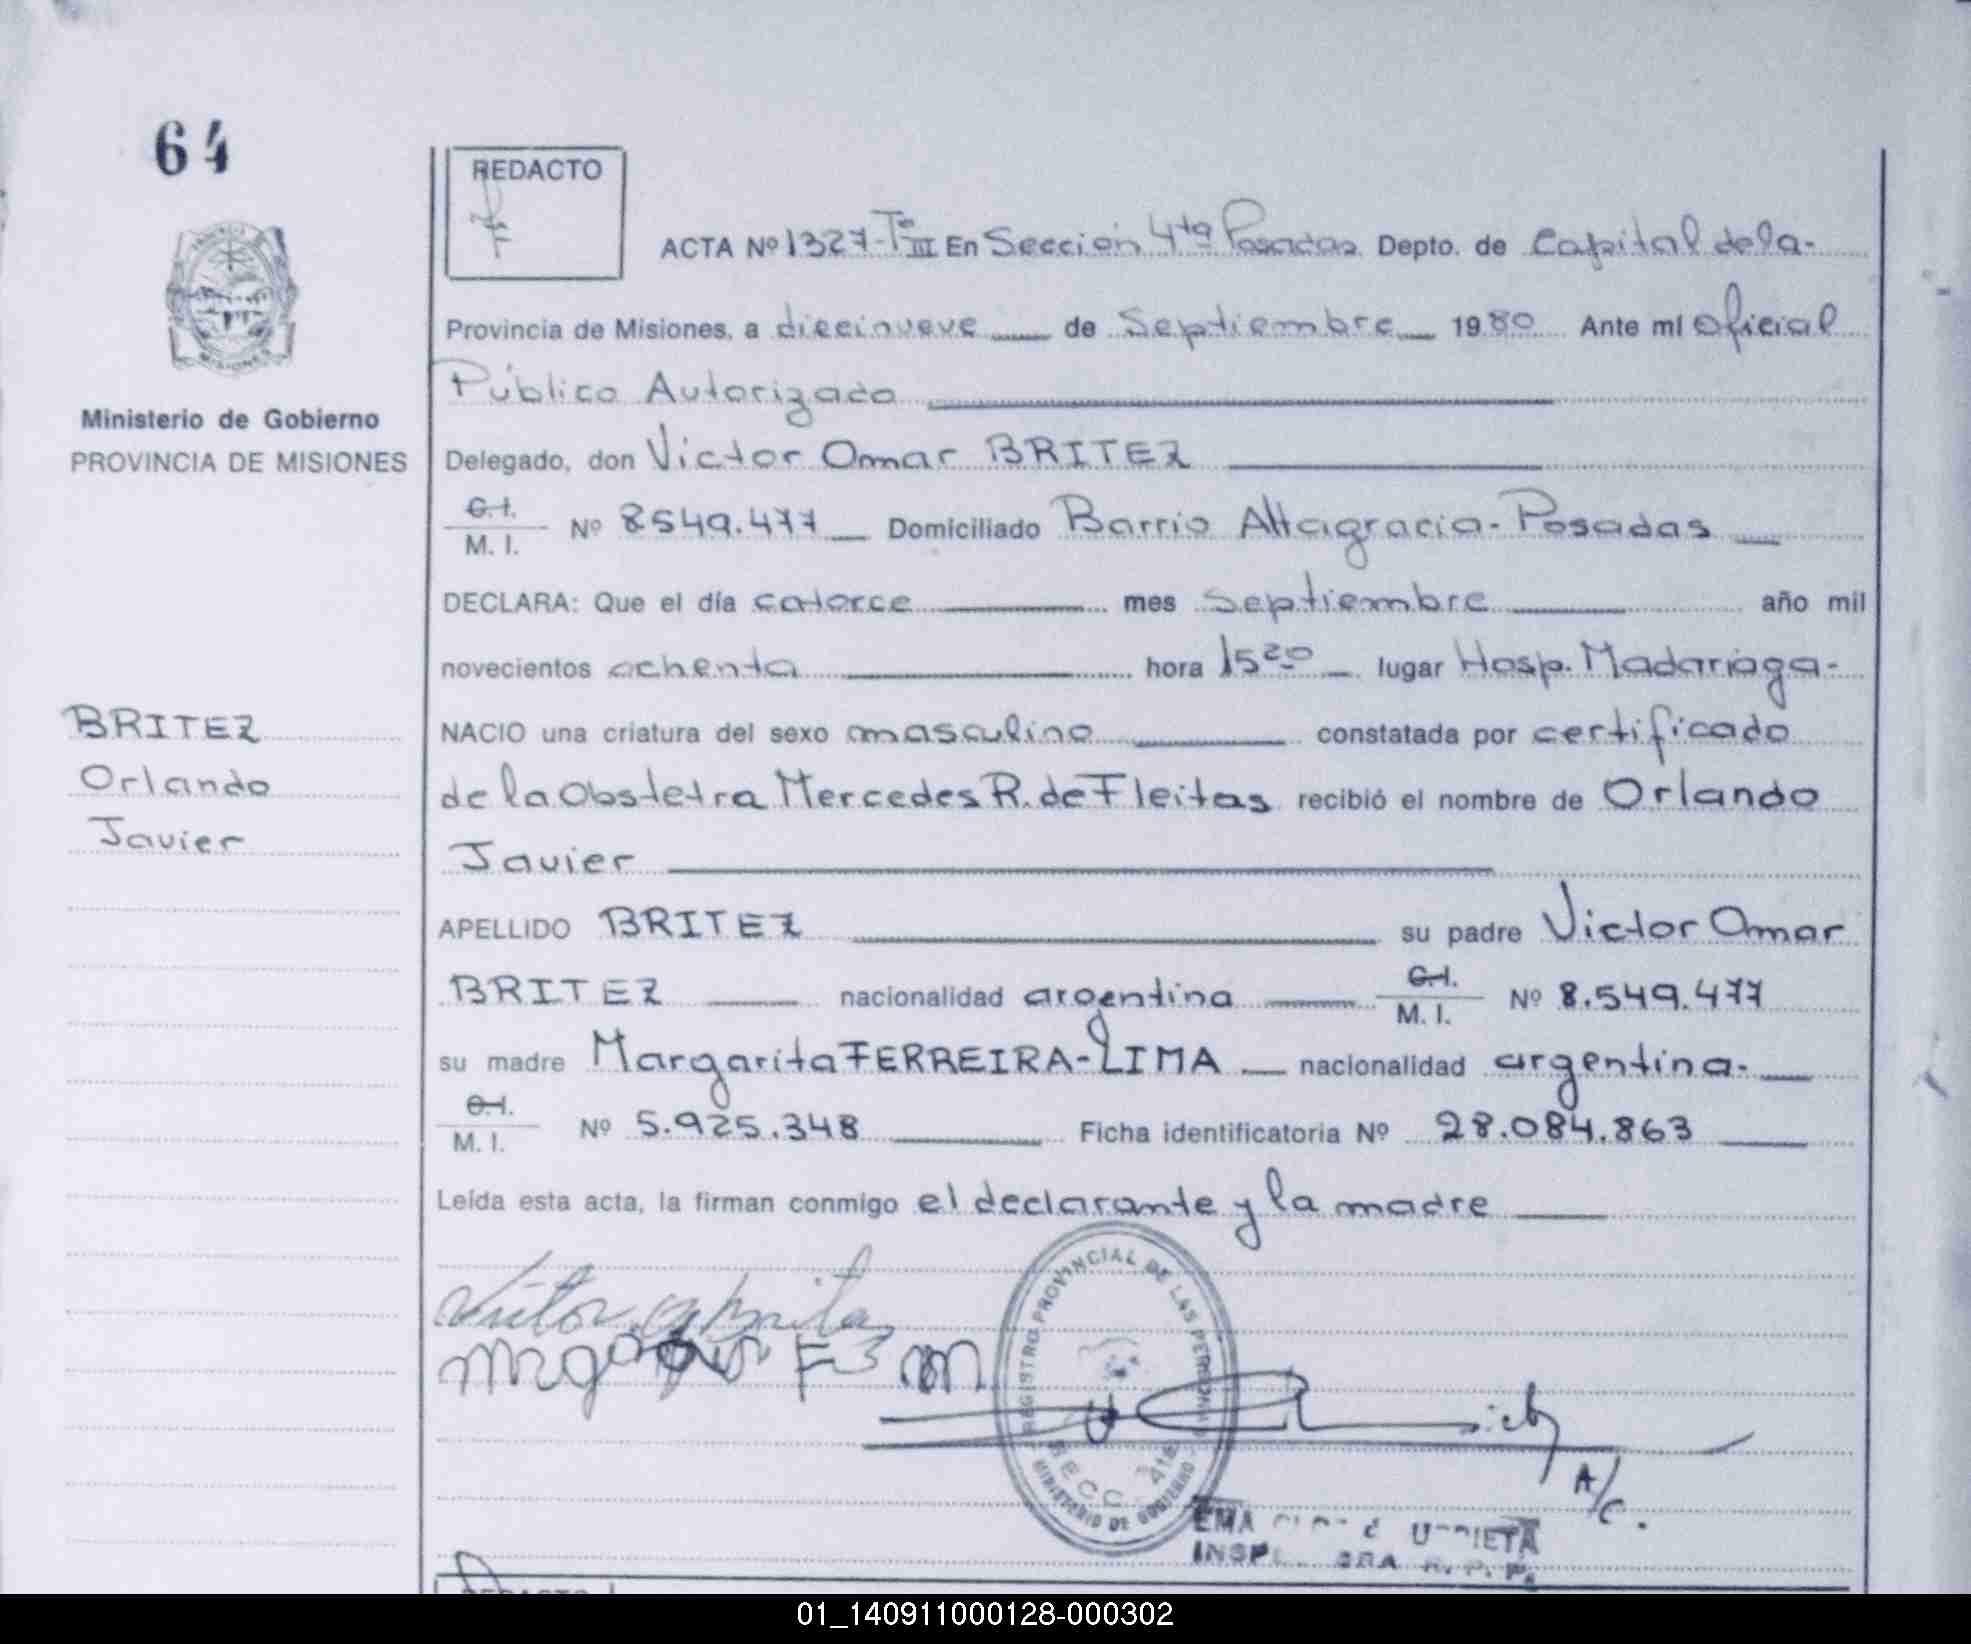 64
REDACTO
ACTA Nº 1327-Tº III En Sección 4ta Posadas Depto. de Capital de la-
Provincia de Misiones, a diecinueve de Septiembre 1980 Ante mí Oficial
Público Autorizado
Ministerio de Gobierno
PROVINCIA DE MISIONES
Delegado, don Victor Omar BRITEZ
C.I.
M. I. Nº 8549.477 Domiciliado Barrio Altagracia-Posadas
DECLARA: Que el día catorce mes Septiembre año mil
novecientos ochenta hora 15 20 lugar Hosp. Madariaga-
BRITEZ
Orlando
Javier
NACIO una criatura del sexo masculino constatada por certificado
de la Obstetra Mercedes R. de Fleitas recibió el nombre de Orlando
Javier
APELLIDO BRITEZ su padre Victor Omar
BRITEZ nacionalidad argentina C.I. M. I. Nº 8.549.477
su madre Margarita FERREIRA-LIMA nacionalidad argentina-
C.I.
M. I. Nº 5.925.348 Ficha identificatoria Nº 28.084.863
Leída esta acta, la firman conmigo el declarante y la madre
REGISTRO PROVINCIAL DE LAS PERSONAS
SECC. 4ta
MINISTERIO DE GOBIERNO
A/C.
EMA
REDACTO
01_140911000128-000302